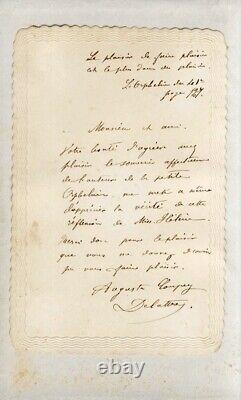 Le plaisir de faire plaisir
est le plus doux des plaisirs.
L'Orphelin du
page 127.
Monsieur et ami.
Votre bonté d'agréer avec
plaisir le souvenir affectueux
de l'auteur de la petite
Orpheline, me met à même
d'apprécier la vérité de cette
réflexion de Miss
Merci donc pour le plaisir
que vous me donnez d'avoir
pu vous faire plaisir.
Augusta
© ebay.com